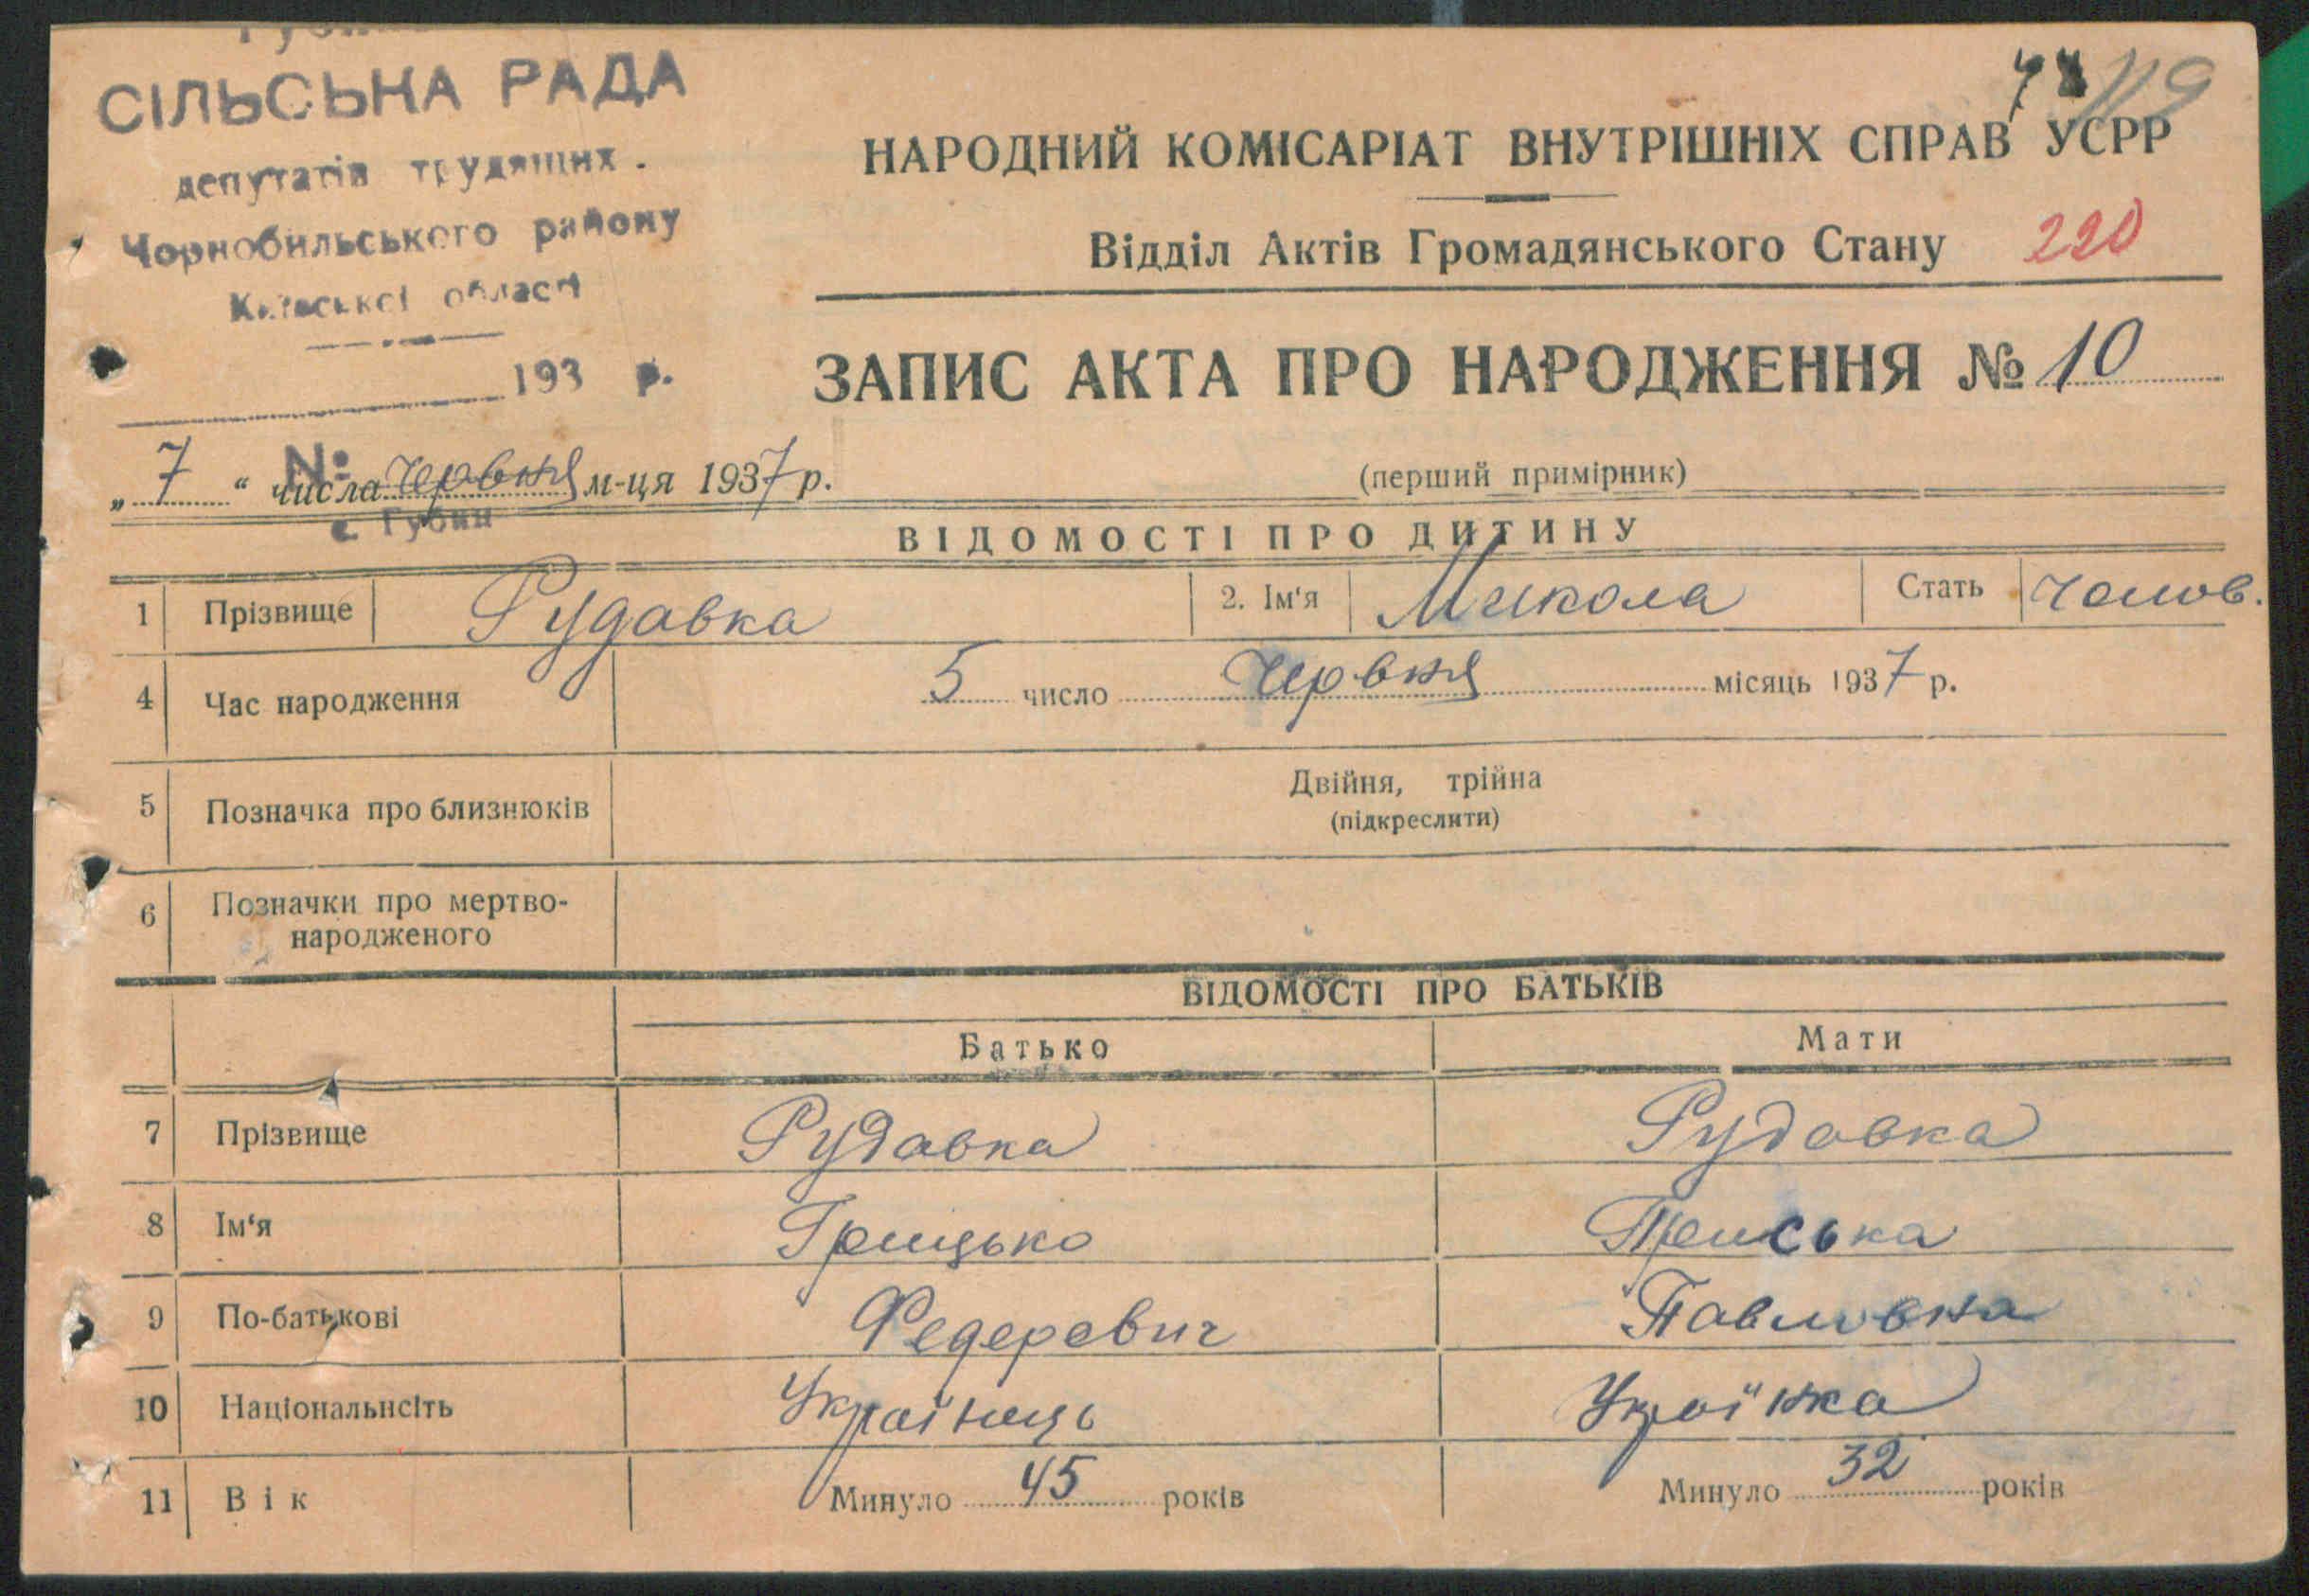 СІЛЬСЬКА РАДА
депутатів трудящих.
Чорнобильського району
Київської області
193 р.
№
с. Губин
119
НАРОДНИЙ КОМІСАРІАТ ВНУТРІШНІХ СПРАВ УСРР
Відділ Актів Громадянського Стану 220
ЗАПИС АКТА ПРО НАРОДЖЕННЯ № 10
„7“ числа Червня м-ця 1937 р.
(перший примірник)
ВІДОМОСТІ ПРО ДИТИНУ
1 Прізвище Рудавка 2. Ім'я Микола Стать Чолов.
4 Час народження 5 число Червня місяць 1937 р.
5 Позначка про близнюків Двійня, трійна
(підкреслити)
6 Позначки про мертво-
народженого
ВІДОМОСТІ ПРО БАТЬКІВ
Батько Мати
7 Прізвище Рудавка Рудавка
8 Ім'я Грицько Приська
9 По-батькові Федерович Павловна
10 Національнсіть Українець Українка
11 Вік Минуло 45 років Минуло 32 років